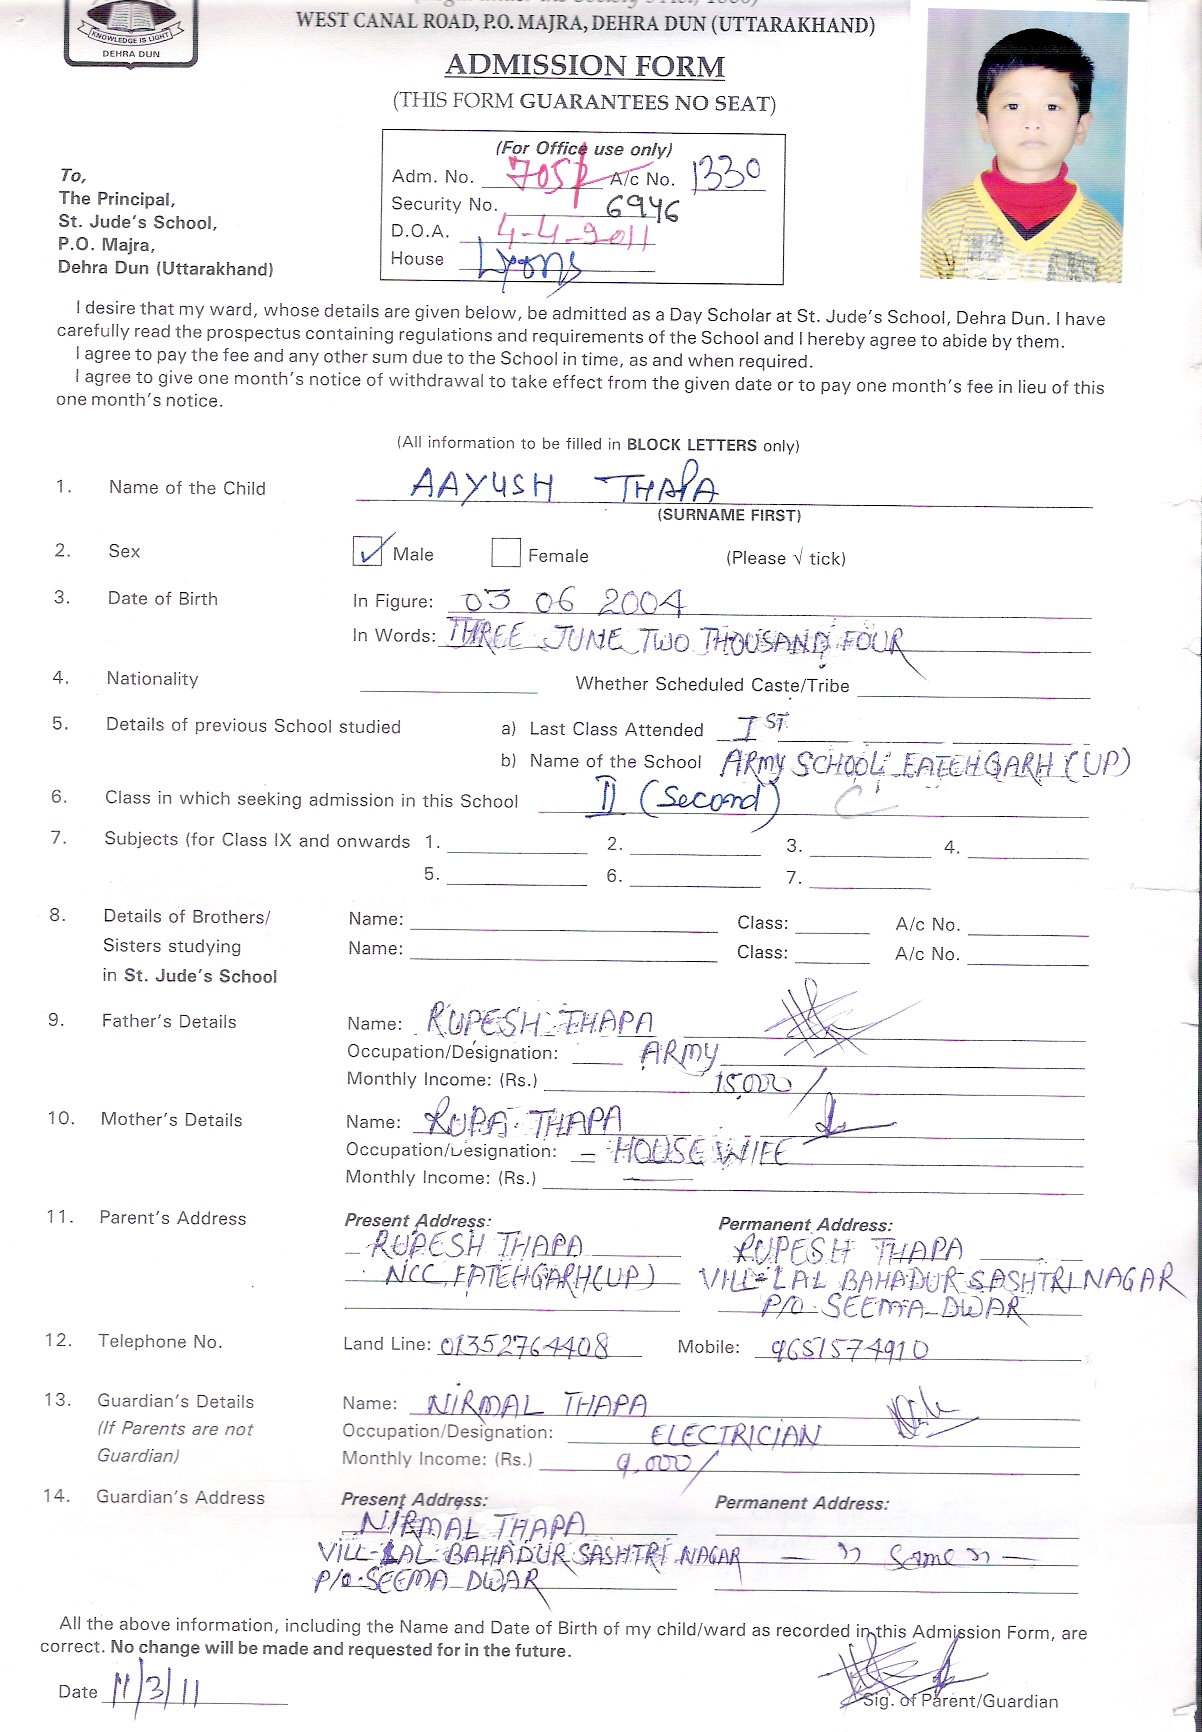 KNOWLEDGE IS LIGHT
DEHRA DUN
WEST CANAL ROAD, P.O. MAJRA, DEHRA DUN (UTTARAKHAND)
ADMISSION FORM
(THIS FORM GUARANTEES NO SEAT)
(For Office use only)
Adm. No. A/c No. 1330
Security No. 6946
D.O.A. 4-4-2011
House Lyons
To,
The Principal,
St. Jude's School,
P.O. Majra,
Dehra Dun (Uttarakhand)
I desire that my ward, whose details are given below, be admitted as a Day Scholar at St. Jude's School, Dehra Dun. I have
carefully read the prospectus containing regulations and requirements of the School and I hereby agree to abide by them.
I agree to pay the fee and any other sum due to the School in time, as and when required.
I agree to give one month's notice of withdrawal to take effect from the given date or to pay one month's fee in lieu of this
one month's notice.
(All information to be filled in BLOCK LETTERS only)
1. Name of the Child AAYUSH THAPA
(SURNAME FIRST)
2. Sex ✓ Male Female (Please √ tick)
3. Date of Birth In Figure: 03 06 2004
In Words: THREE JUNE TWO THOUSAND FOUR
4. Nationality Whether Scheduled Caste/Tribe
5. Details of previous School studied a) Last Class Attended I ST
b) Name of the School ARMY SCHOOL FATEHGARH (UP)
6. Class in which seeking admission in this School II (Second) C
7. Subjects (for Class IX and onwards 1. 2. 3. 4.
5. 6. 7.
8. Details of Brothers/ Name: Class: A/c No.
Sisters studying Name: Class: A/c No.
in St. Jude's School
9. Father's Details Name: RUPESH THAPA
Occupation/Designation: ARMY
Monthly Income: (Rs.) 15,000/
10. Mother's Details Name: RUPA THAPA
Occupation/Designation: — HOUSE WIFE
Monthly Income: (Rs.) —
11. Parent's Address Present Address: Permanent Address:
RUPESH THAPA RUPESH THAPA
NCC, FATEHGARH (UP) VILL-LAL BAHADUR SASHTRI NAGAR
P/O-SEEMA DWAR
12. Telephone No. Land Line: 01352764408 Mobile: 9651574910
13. Guardian's Details Name: NIRMAL THAPA
(If Parents are not Occupation/Designation: ELECTRICIAN
Guardian) Monthly Income: (Rs.) 9,000/
14. Guardian's Address Present Address: Permanent Address:
NIRMAL THAPA
VILL-LAL BAHADUR SASHTRI NAGAR — " Same " —
P/O-SEEMA DWAR
All the above information, including the Name and Date of Birth of my child/ward as recorded in this Admission Form, are
correct. No change will be made and requested for in the future.
Date 11/3/11
Sig. of Parent/Guardian